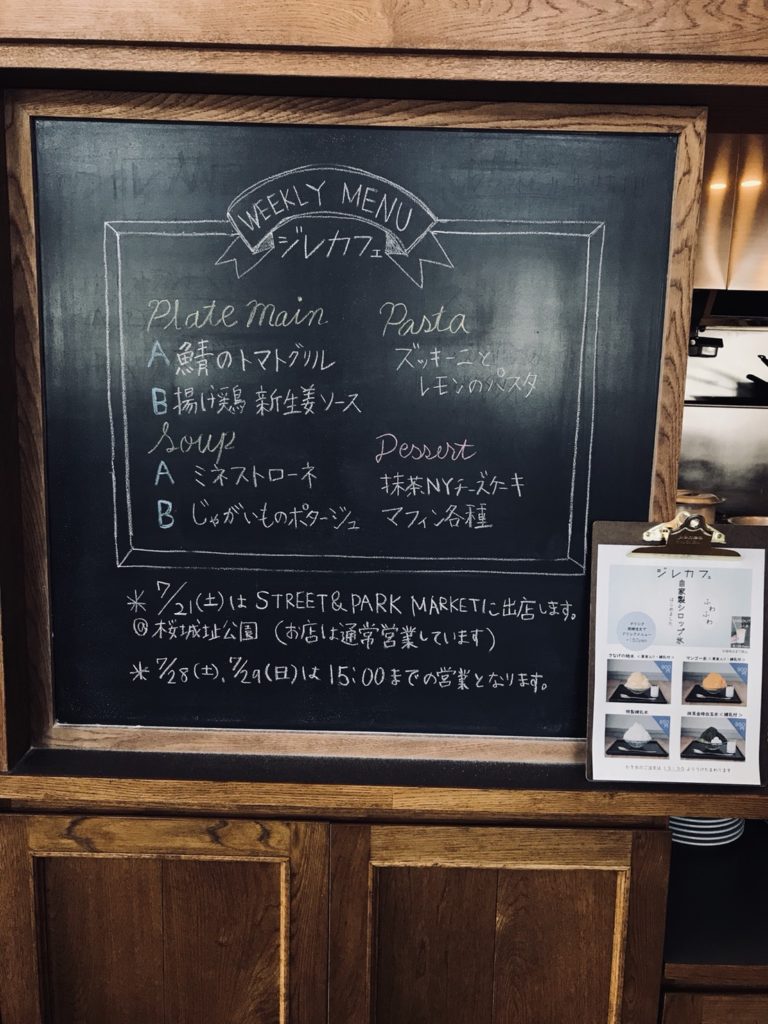 WEEKLY MENU
ジレカフェ
Plate Main
A 鯖のトマトグリル
B 揚げ鶏 新生姜ソース
Soup
A ミネストローネ
B じゃがいものポタージュ
Pasta
ズッキーニと
レモンのパスタ
Dessert
抹茶NYチーズケーキ
マフィン各種
＊ 7/21(土)は STREET & PARK MARKETに出店します。
@桜城址公園 (お店は通常営業しています)
＊ 7/28(土)、7/29(日)は 15:00までの営業となります。
ジレカフェ
ふわふわ
自家製シロップ氷
はじめました